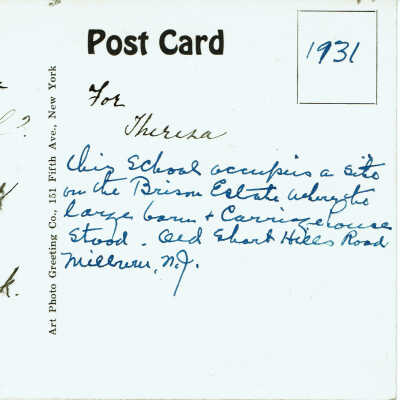 Post Card
1931
For
Theresa
This School occupies a site
on the Brison Estate where the
large barn + Carriagehouse
stood. Old Short Hills Road
Millburn, N.J.
Art Photo Greeting Co., 151 Fifth Ave., New York
?
k.